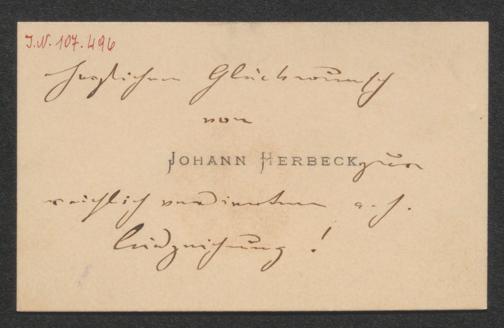 J.N. 107.496
Herzlichen Glückwunsch
von
JOHANN HERBECK zur
reichlich verdienten a. h.
Auszeichnung!